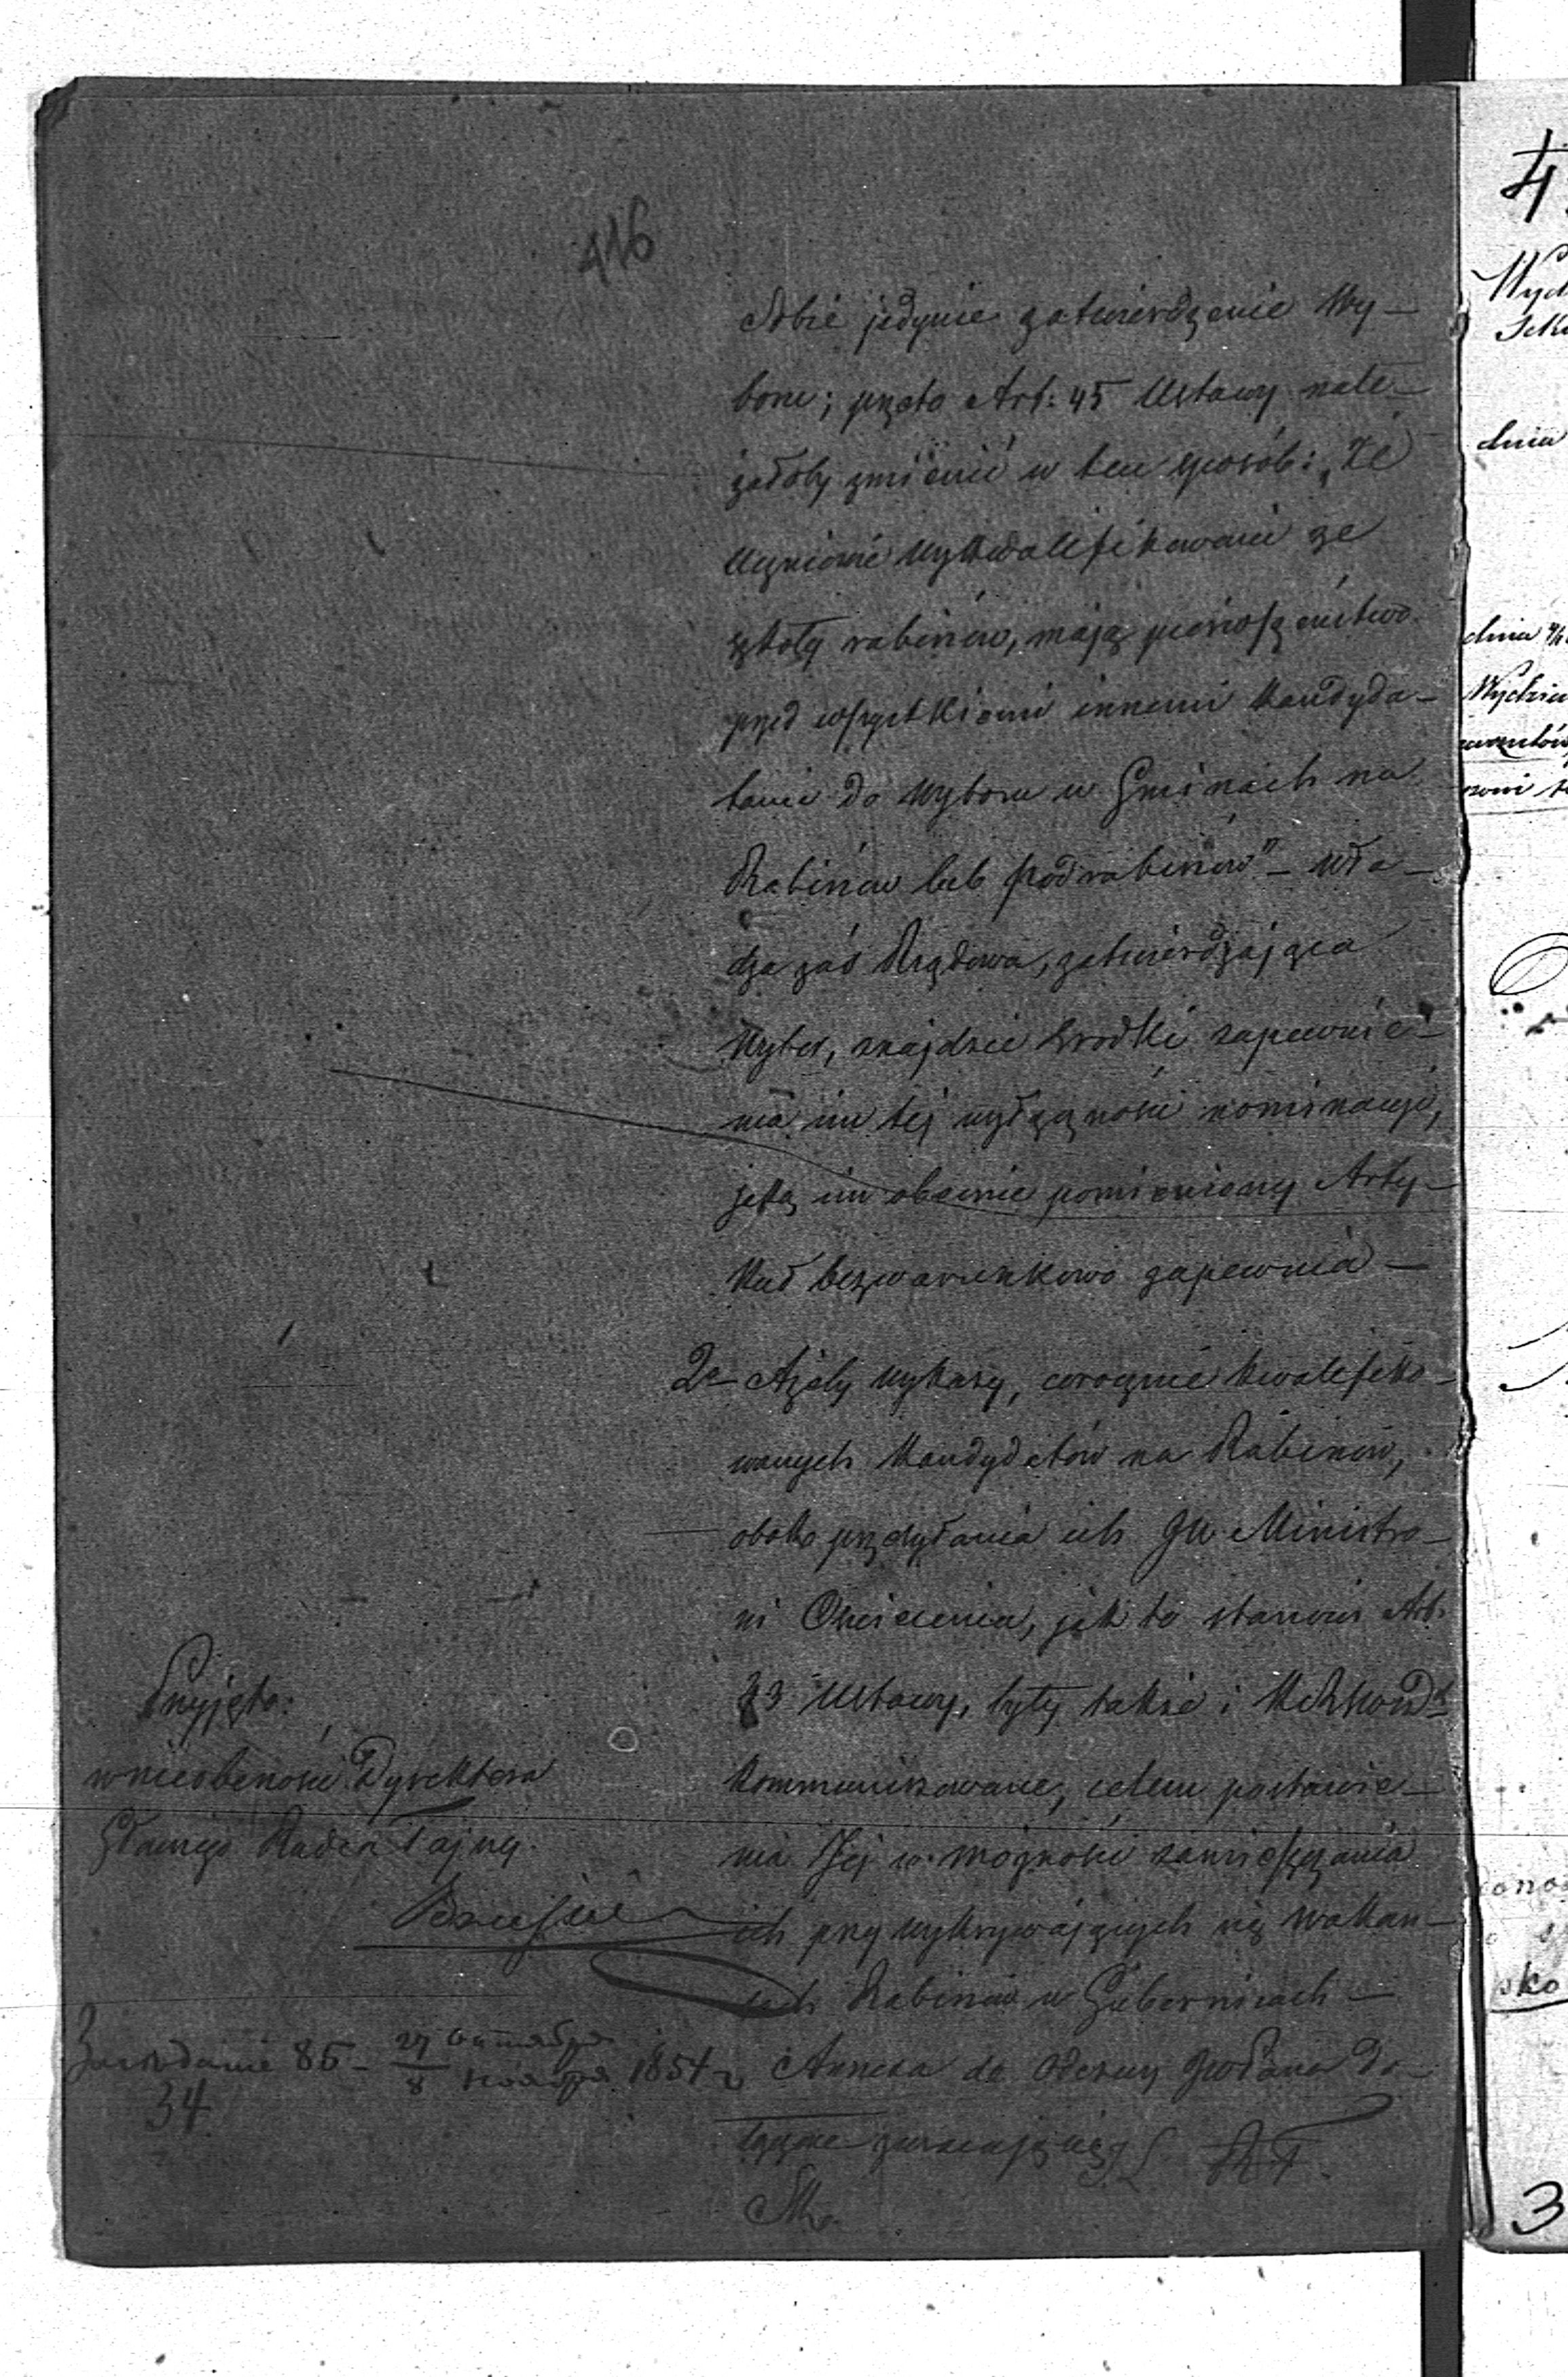 416
sobie jedynie zatwierdzenie Wy-
boru; przeto Art: 45 Ustawy nale-
żałoby zmienić w ten sposób: „Że
uczniowie wykwalifikowani ze
szkoły rabinów, mają pierwszeństwo
przed wszystkiemi innemi Kandyda-
tami do wyboru w Gminach na
Rabinów lub podrabinów" - Wła-
dza zaś Rządowa, zatwierdzająca
Wybór, znajdzie środki zapewnie-
nia im tej wyłączności nominacyi,
jaką im obecnie pomieniony Arty-
kuł bezwarunkowo zapewnia -
2e Ażeby wykazy, corocznie kwalifiko-
wanych Kandydatów na Rabinów,
obok przesyłania ich JW Ministro-
wi Oświecenia, jak to stanowi Art.
Ustawy, były także i
kommunikowane, celem postawie-
nia Jej w możności zamieszczania
ich przy wykrywających się wakan-
sach Rabinów w Guberniach -
Annexa do Odezwy do-
łączone zwracają się
Przyjęto:
w nieobecności Dyrektora
Głównego Radca Tajny
85 - 27 Октября / 8 Ноября 1854
34
4
dnia
dnia
3